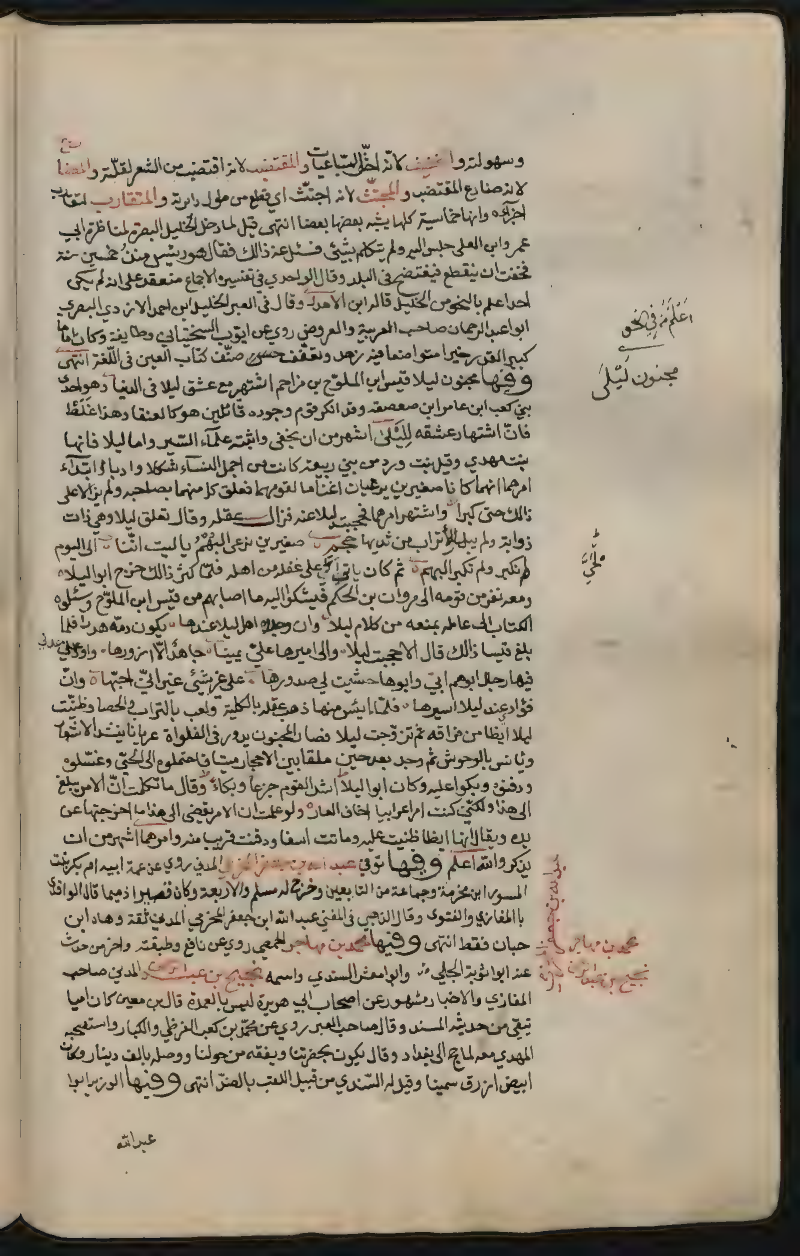 وسهولته والخفيف لانه اخف السباعيات والمقتضب لانه اقتضب من الشعر لقلته والمضا
لانه ضارع المقتضب والمجتث لانه اجتث اي قطع من طول دائرته والمتقارب لتقارب
اجزآءه وانها خماسية كلها يشبه بعضها بعضا انتهى قيل لما دخل الخليل البصرة لمناظرة ابي
عمرو ابن العلى جلس اليه ولم يتكلم بشئ فسئل عن ذالك فقال هو رئيس منذ خمسين سنة
فخفت ان ينقطع فيفتضح في البلد وقال الواحدي في تفسيره الاجماع منعقد على انه لم يكن
احد اعلم بالنحو من الخليل قاله ابن الاهدل وقال في العبر الخليل ابن احمد الازدي البصري
ابو عبد الرحمان صاحب العربية والعروض روي عن ايوب السختياني وطايفة وكان اماما
كبير القدر خيرا متواضعا فيه زهد وتعفف صنف كتاب العين في اللغة انتهى
وفيها مجنون ليلا قيس ابن الملوح بن مزاحم اشتهر مع عشق ليلا في الدنيا وهو احد
بني كعب ابن عامر ابن صعصعه وقد انكر قوم وجوده قائلين هو كالعنقا وهذا غلط
فان اشتهار عشقه لليلى اشهر من ان يخفى واثبته علمآء السير واما ليلا فانها
بنت مهدي وقيل بنت ورد من بني ربيعة كانت من اجمل النسآء شكلا وادبا وابتدآء
امرهما انهما كانا صغيرين يرعيان اغناما لقومهما فعلق كل منهما بصاحبه ولم يزالا على
ذالك حتى كبرا واشتهر امرهما فحجبت ليلا عنه فزال عقله وقال تعلق ليلا وهي ذات
ذوابة ولم يبد للأتراب من ثديها حجم صغيرين نرعى البهم يا ليت اننا الى اليوم
لم نكبر ولم تكبر البهم ثم كان ياتي الحي على غفلة من اهله فلما كثر ذالك خرج ابو ليلا
ومعه نفر من قومه الى مروان بن الحكم فيشكوا اليه ما اصابهم من قيس ابن الملوح وسئلوه
الكتاب الى عامله بمنعه من كلام ليلا وان وجده اهل ليلا عندها يكون دمه هدرا فلما
بلغ قيسا ذالك قال الا حجبت ليلا والى اميرها علي يمينا جاهدا لا ازورها واوعدني
فيها رجال ابوهم ابي وابوها حشيت لي صدورها على غير شئ غير اني احبها وان
فؤادي عند ليلا اسيرها فلما ايس منها ذهب عقله بالكلية ولعب بالتراب والحصا وظنيت
ليلا ايظا من فراقه ثم تزوجت ليلا فصار المجنون يدور في الفلواة عريانا ينشد الاشعار
ويأنس بالوحوش ثم وجد بعد حين ملقا بين الاحجار ميتا فاحتملوه الى الحي وغسلوه
ودفنوه وبكوا عليه وكان ابو ليلا اشد القوم جزعا وبكاء وقال ما تكلمت ان الامر يبلغ
الى هذا ولكني كنت امرا عرابيا اخاف العار ولو علمت ان الامر يفضي الى هذا ما اخرجتها عن
يده ويقال انها ايظا ظنيت عليه وماتت اسفا ودفنت قريب منه وامرهما اشهر من ان
يذكر والله اعلم وفيها توفي عبد الله بن جعفر المخرمي المدني روي عن عمة ابيه ام بكر بنت
المسور ابن مخرمة وجماعة من التابعين وخرج له مسلم والاربعة وكان قصيرا ذميما قال الواقدي
بالمغازي والفتوى وقال الذهبي في المغني عبد الله ابن جعفر المخرمي المدني ثقة وهاه ابن
حبان فقط انتهى وفيها محمد بن مهاجر الحمصي روي عن نافع وطبقته واخر من حدث
عنه ابو توبة الحلبي وابو معشر السندي واسمه نجيح بن عبد الرحمن المدني صاحب
المغازي والاخبار مشهور عن اصحاب ابي هريرة ليس بالعمدة قال بن معين كان اميا
يتقى من حديثه المسند وقال صاحب العبر روي عن محمد بن كعب القرظي والكبار واستصحبه
المهدي معه لما حج الى بغداد وقال يكون بحضرتنا ويفقه من حولنا ووصله بالف دينار وكان
ابيض ازرق سمينا وقيل له السندي من قبيل اللقب بالضد انتهى وفيها الوزير ابوا
عبد الله
اعلم من في النحو
مجنون ليلى
محمد بن مهاجر
نجيح بن عبد الرحمن